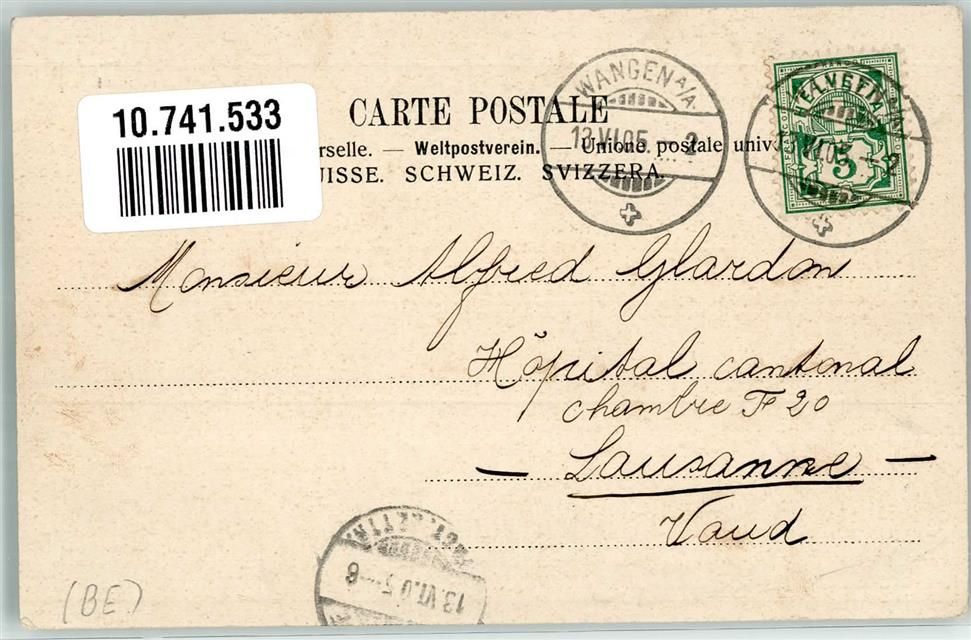 10.741.533
CARTE POSTALE
rselle. — Weltpostverein. — Unione postale univ
UISSE. SCHWEIZ. SVIZZERA.
WANGEN A/A.
13.VI.05.
HELVETIA
5
Monsieur Alfred Glardon
Hôpital cantonal
chambre F 20
— Lausanne —
Vaud
13.VI.05.-8
(BE)